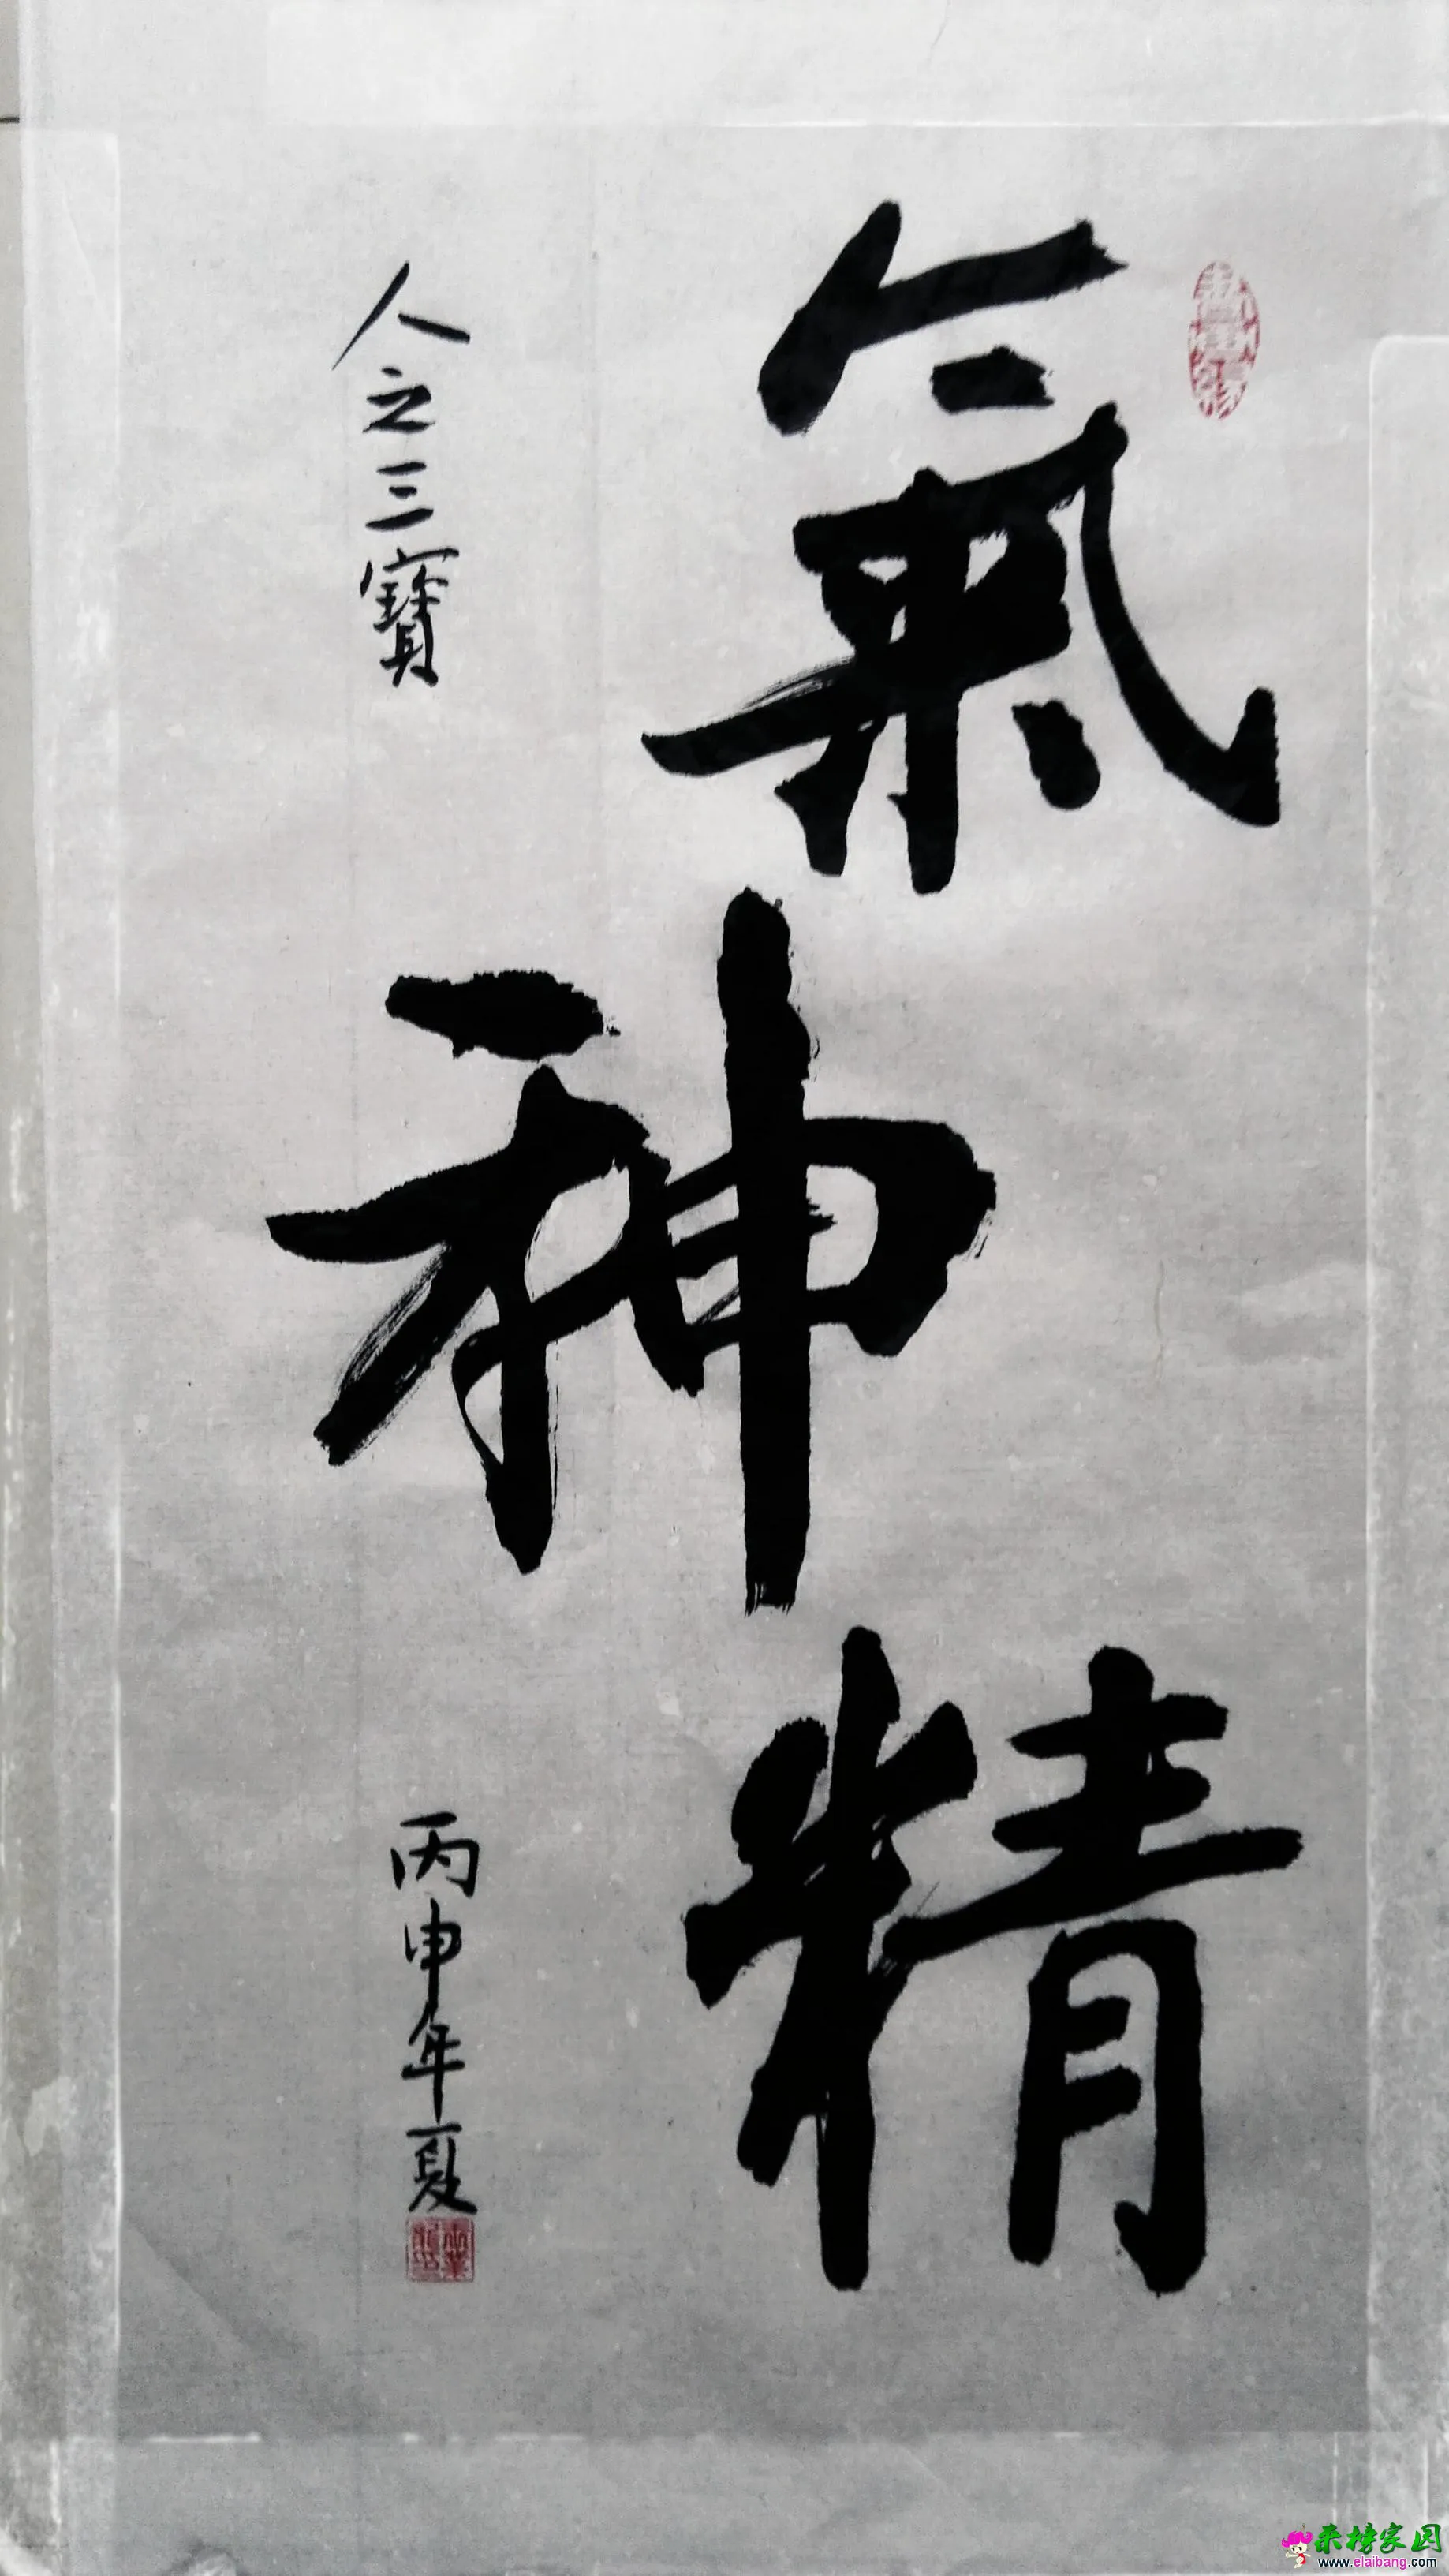 氣神精
人之三寶
丙申年夏
来榜家园
www.elaibang.com